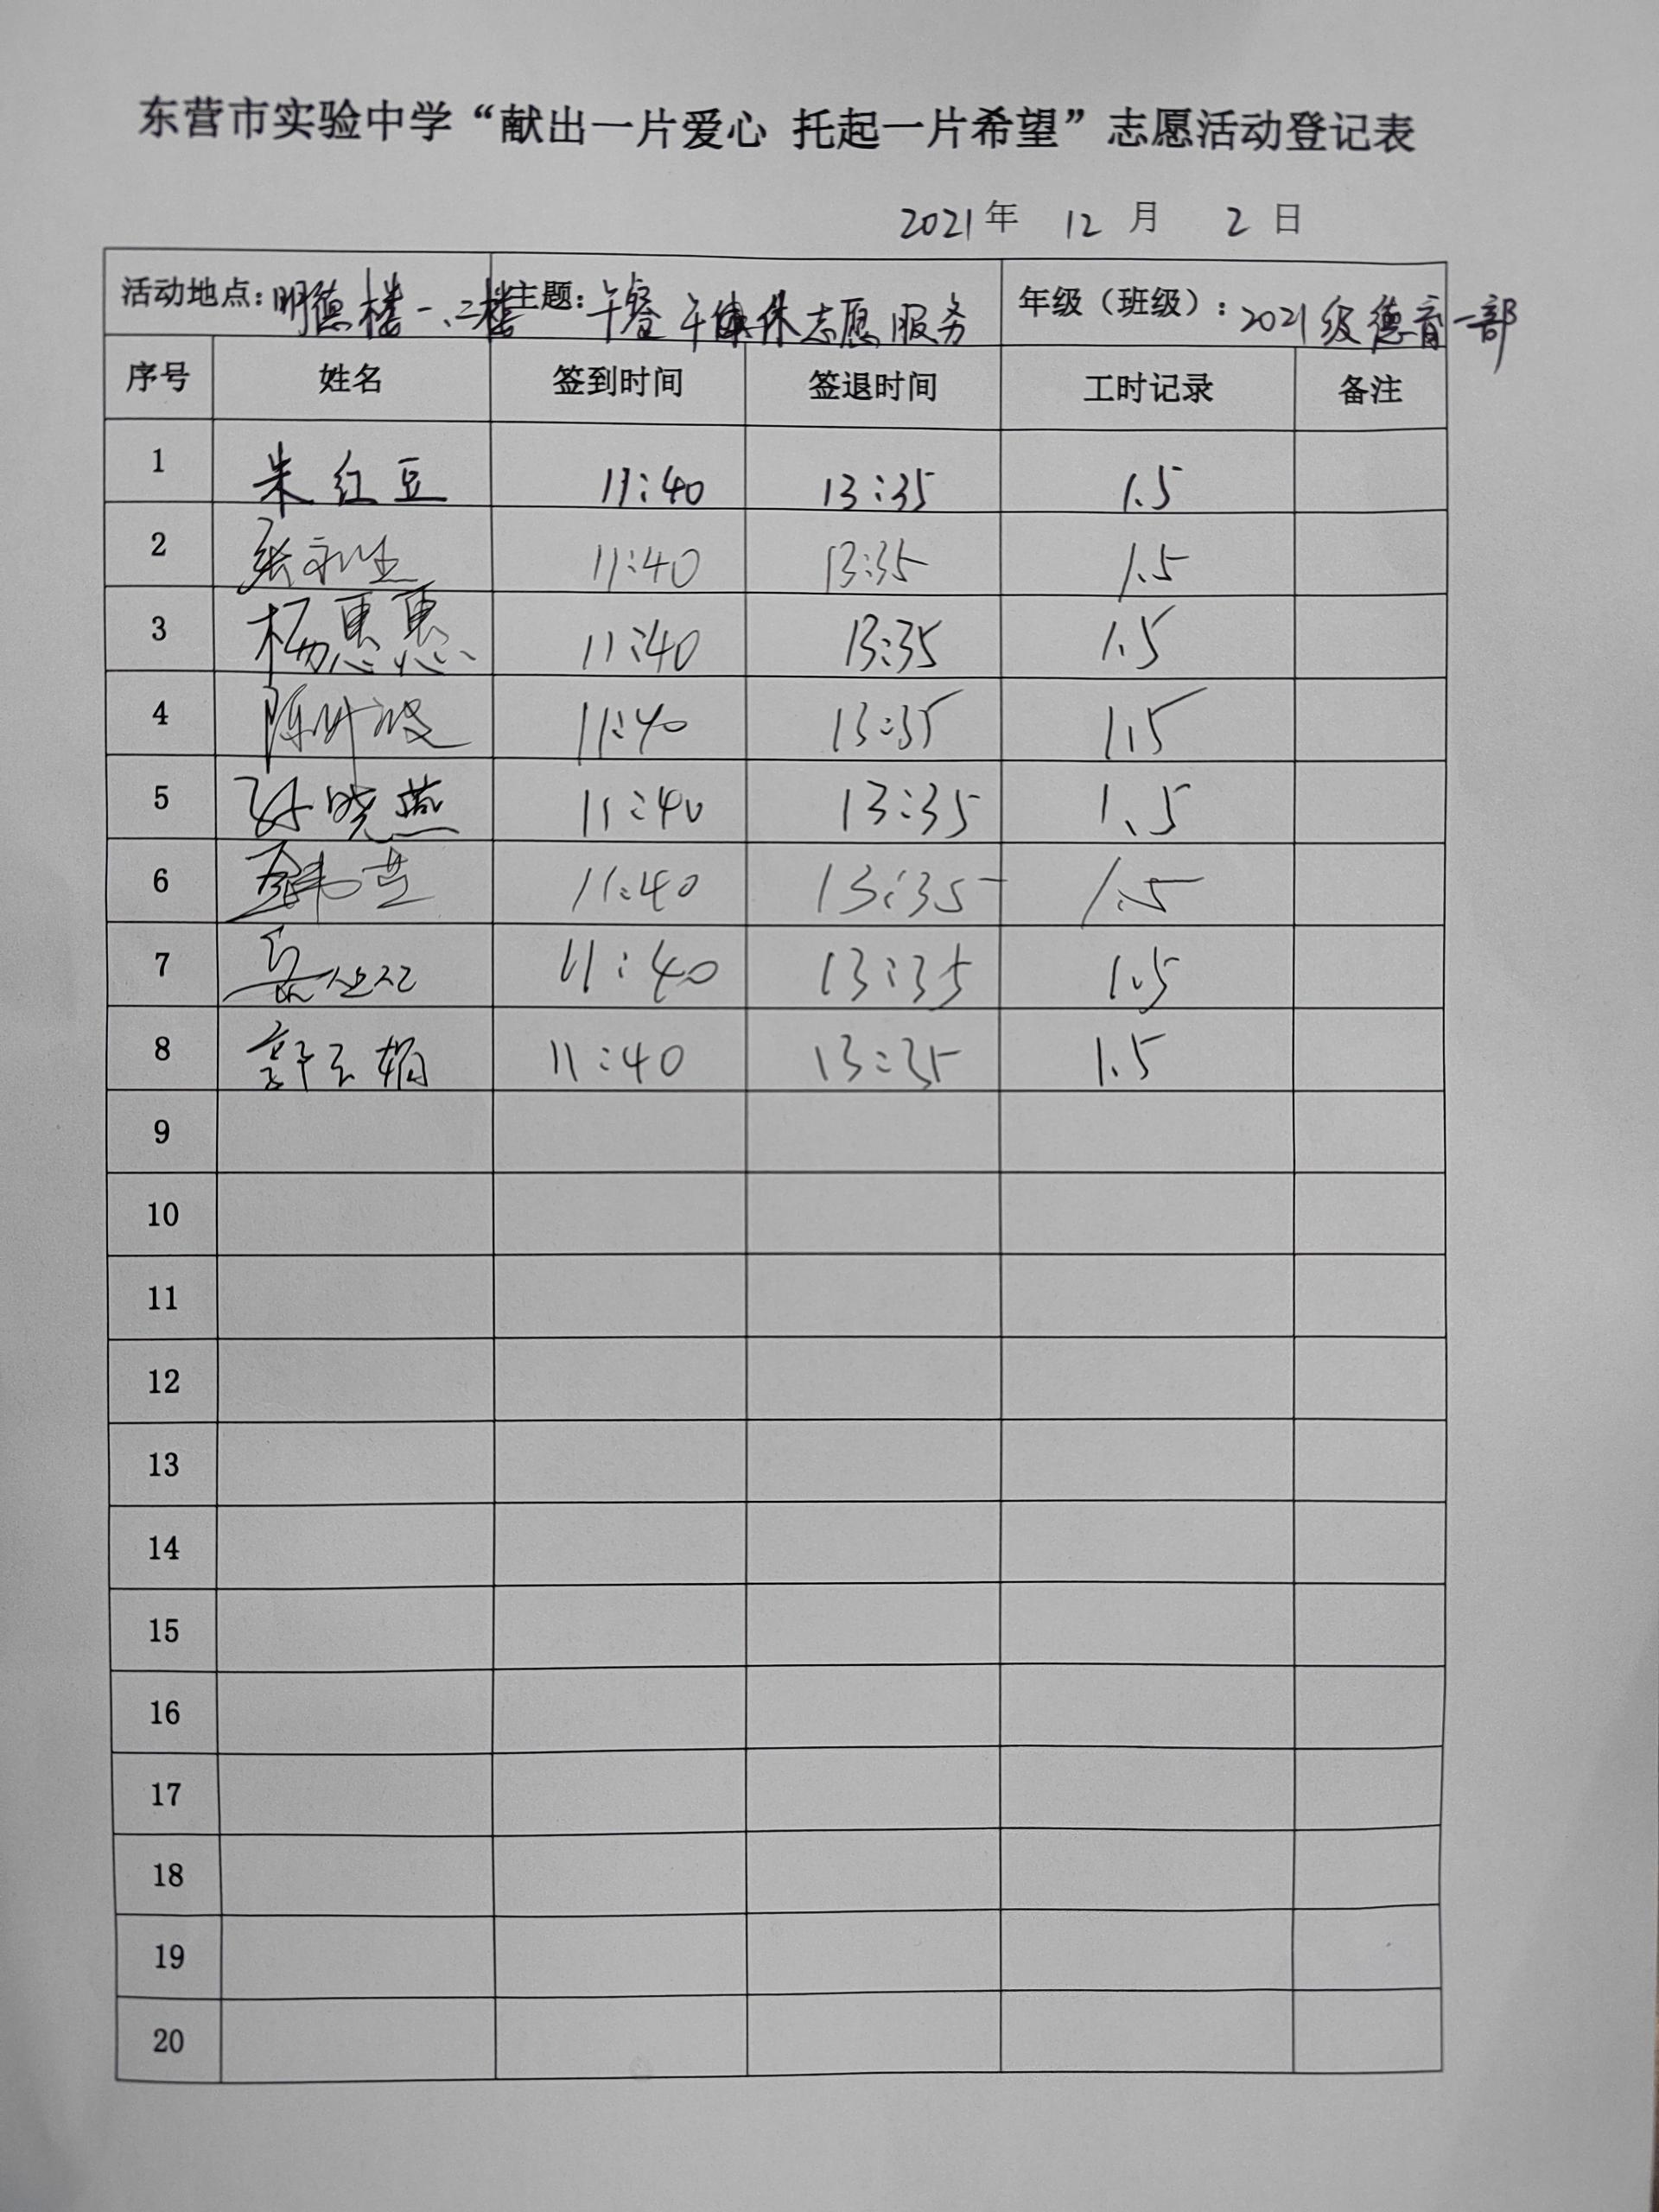 东营市实验中学“献出一片爱心 托起一片希望”志愿活动登记表
2021年 12月 2日
活动地点：明德楼一、二楼 主题：午餐午休志愿服务 年级（班级）：2021级德育一部
序号 姓名 签到时间 签退时间 工时记录 备注
1 朱红豆 11:40 13:35 1.5
2 11:40 13:35 1.5
3 杨惠惠 11:40 13:35 1.5
4 11:40 13:35 1.5
5 孙晓燕 11:40 13:35 1.5
6 11:40 13:35 1.5
7 11:40 13:35 1.5
8 11:40 13:35 1.5
9
10
11
12
13
14
15
16
17
18
19
20